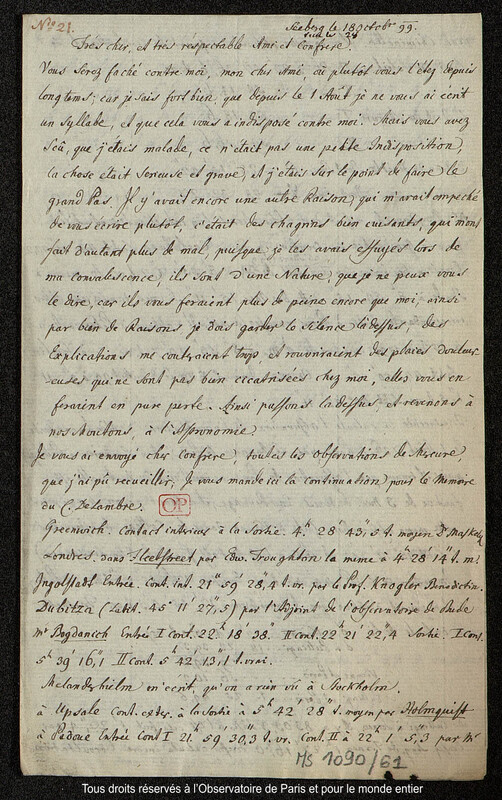 No. 21.
Seeberg le 18 Octobr 99.
Très cher, et très respectable Ami et Confrere.
Vous serez faché contre moi, mon cher Ami, où plutôt vous l'êtes depuis
long tems; car je sais fort bien, que depuis le 1 Août je ne vous ai écrit
un syllabe, et que cela vous a indisposé contre moi. Mais vous avez
sçû, que j'etais malade, ce n'était pas une petite Indisposition,
la chose était serieuse et grave, et j'étais sur le point de faire le
grand Pas. Il y avait encore une autre Raison, qui m'avait empeché
de vous écrire plutôt, c'était des chagrins bien cuisants, qui m'ont
fait d'autant plus de mal, puisque je les avais essuyés lors de
ma convalescence, ils sont d'une Nature, que je ne peux vous
le dire, car ils vous feraient plus de peine encore que moi, ainsi
par bien de Raisons je dois garder le silence làdessus, des
Explications me coutraient trop et rouvriraient des plaies douleur-
euses qui ne sont pas bien cicatrisées chez moi, elles vous en
feraient en pure perte. Ainsi passons ladessus et revenons à
nos Moutons, à l'Astronomie.
Je vous ai envoyé cher Confrere, toutes les observations de Mercure,
que j'ai pû recueillir, Je vous mande ici la continuation pour le Memoire
du C. DeLambre. OP
Greenwich. Contact interieur à la Sortie. 4h 28' 43",5 t. moyen Dr Maskely
Londres. dans Fleetstreet par Edw. Troughton la meme à 4h 28' 14" t. m.
Ingolstadt Entrée. Cont. int. 21h 59' 28,4 t. vr. par le Prof. Knogler Benedictin.
Dubitza (Latit. 45° 11' 27",5) par l'Adjoint de l'observatoire de Bude
Mr Bogdanich Entrée I Cont. 22h 18' 38" II Cont. 22h 21' 22",4 Sortie. I Cont.
5h 39' 16",1 II Cont. 5h 42' 13",1 t. vrai.
Melanderhielm m'écrit, qu'on a rien vû à Stockholm.
à Upsale Cont. exter. à la sortie à 5h 42' 28" t. moyen par Holmquist
à Padoue Entrée Cont I 21h 59' 30",3 t. vr. Cont. II à 22h 1' 5",3 par Mr
MS 1090/61
Tous droits réservés à l'Observatoire de Paris et pour le monde entier